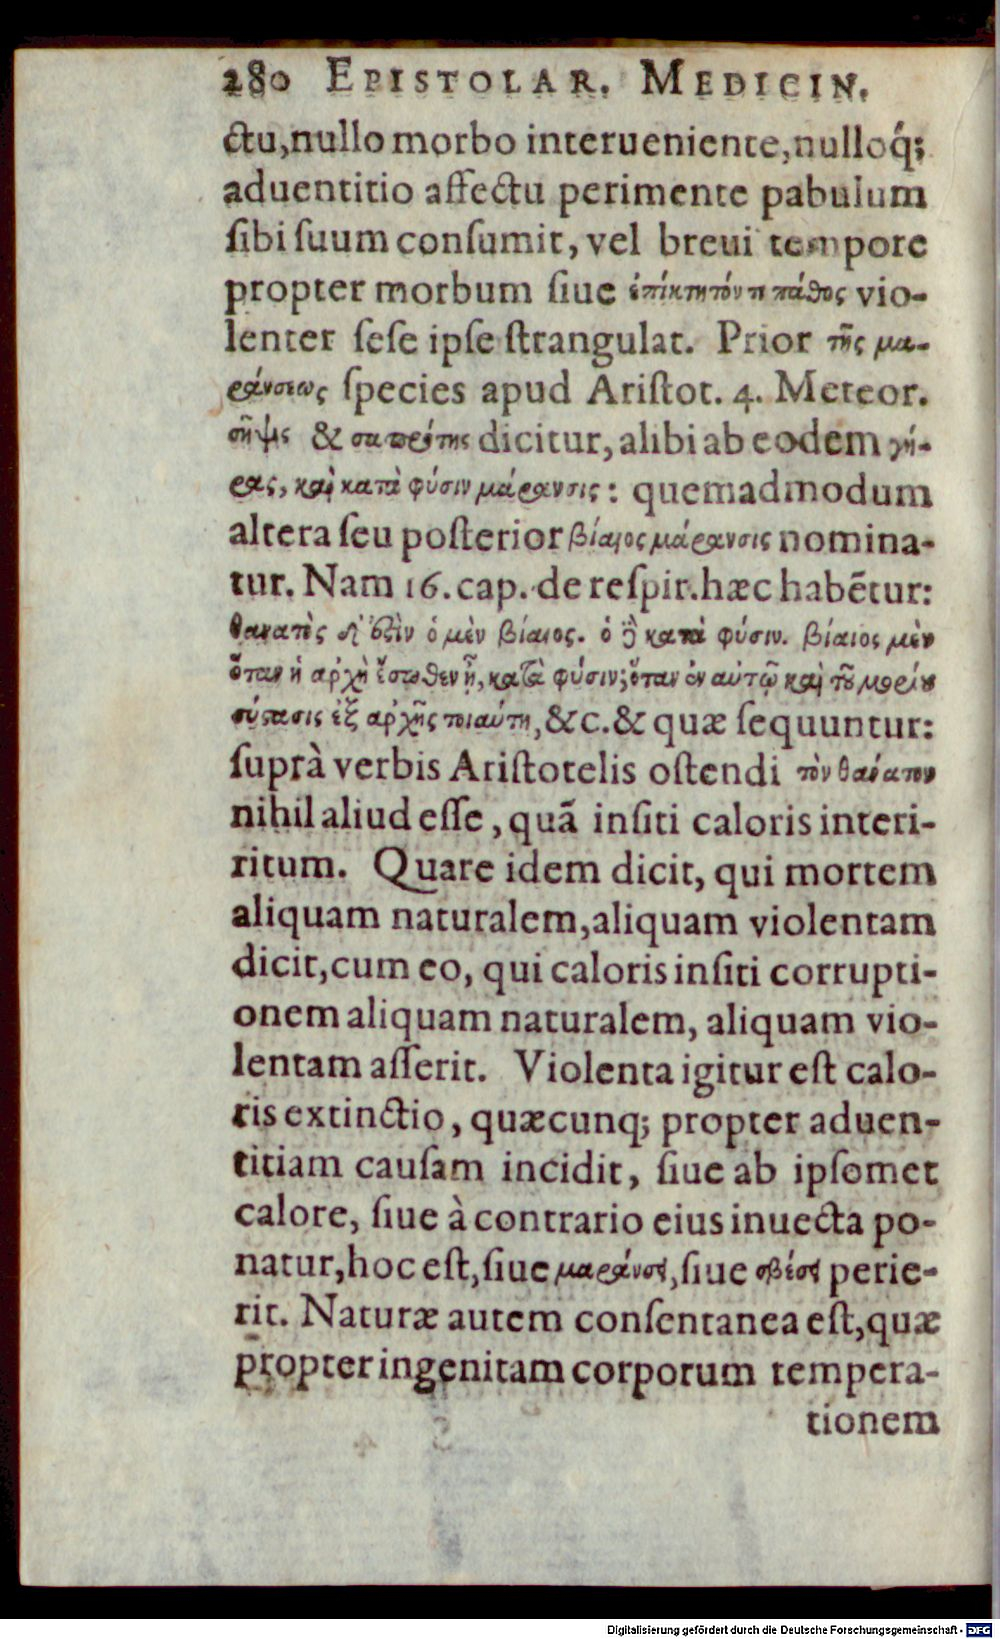 280 EPISTOLAR. MEDICIN.
ctu,nullo morbo interueniente,nulloq́;
aduentitio affectu perimente pabulum
ſibi ſuum conſumit, vel breui tempore
propter morbum ſiue ἐπίκτητόν τι πάθος vio-
lenter ſeſe ipſe ſtrangulat. Prior τῆς μα-
ράνσεως ſpecies apud Ariſtot. 4. Meteor.
σῆψις & σαπρότης dicitur, alibi ab eodem γή-
ρας, καὶ κατὰ φύσιν μάρανσις: quemadmodum
altera ſeu poſterior βίαιος μάρανσις nomina-
tur. Nam 16. cap. de reſpir. hæc habẽtur:
θανατὸς δ' ἐστὶν ὁ μὲν βίαιος. ὁ δὲ κατὰ φύσιν. βίαιος μὲν
ὅταν ἡ αρχὴ ἔξωθεν ᾖ, κατὰ φύσιν; ὅταν ἐν αὐτῷ καὶ τοῦ μορίου
σύστασις ἐξ αρχῆς τοιαύτη, &c. & quæ ſequuntur:
ſuprà verbis Ariſtotelis oſtendi τὸν θάνατον
nihil aliud eſſe, quã inſiti caloris interi-
ritum. Quare idem dicit, qui mortem
aliquam naturalem, aliquam violentam
dicit, cum eo, qui caloris inſiti corrupti-
onem aliquam naturalem, aliquam vio-
lentam aſſerit. Violenta igitur eſt calo-
ris extinctio, quæcunq; propter aduen-
titiam cauſam incidit, ſiue ab ipſomet
calore, ſiue à contrario eius inuecta po-
natur, hoc eſt, ſiue μαράνσει, ſiue σβέσει perie-
rit. Naturæ autem conſentanea eſt, quæ
propter ingenitam corporum tempera-
tionem
Digitalisierung gefördert durch die Deutsche Forschungsgemeinschaft - DFG